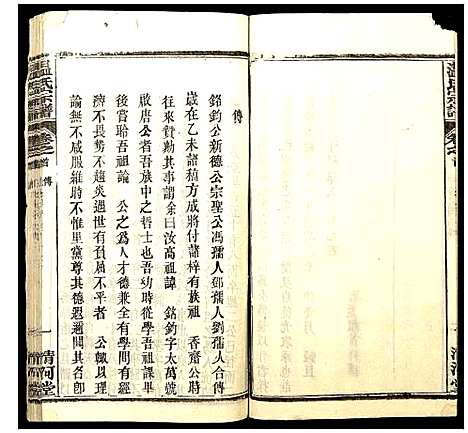 溫氏宗譜
卷之首
傳
清河堂
傳
銘鈞公新德公宗聖公馮孺人邵孺人劉孺人合傳
歲在乙未諸稿方成將付諸梓有族祖 香齋公時
往來贊勷其事謂余曰汝高祖諱 銘鈞字太萬號
啟唐公者吾族中之哲士也吾幼時從學吾祖課畢
後嘗聆吾祖論 公之為人才德兼全有學問有經
濟不畏勢不趨炎遇世有厯不平者 公輒以理
論無不咸服維時不惟里黨尊其德遐邇聞其名卽